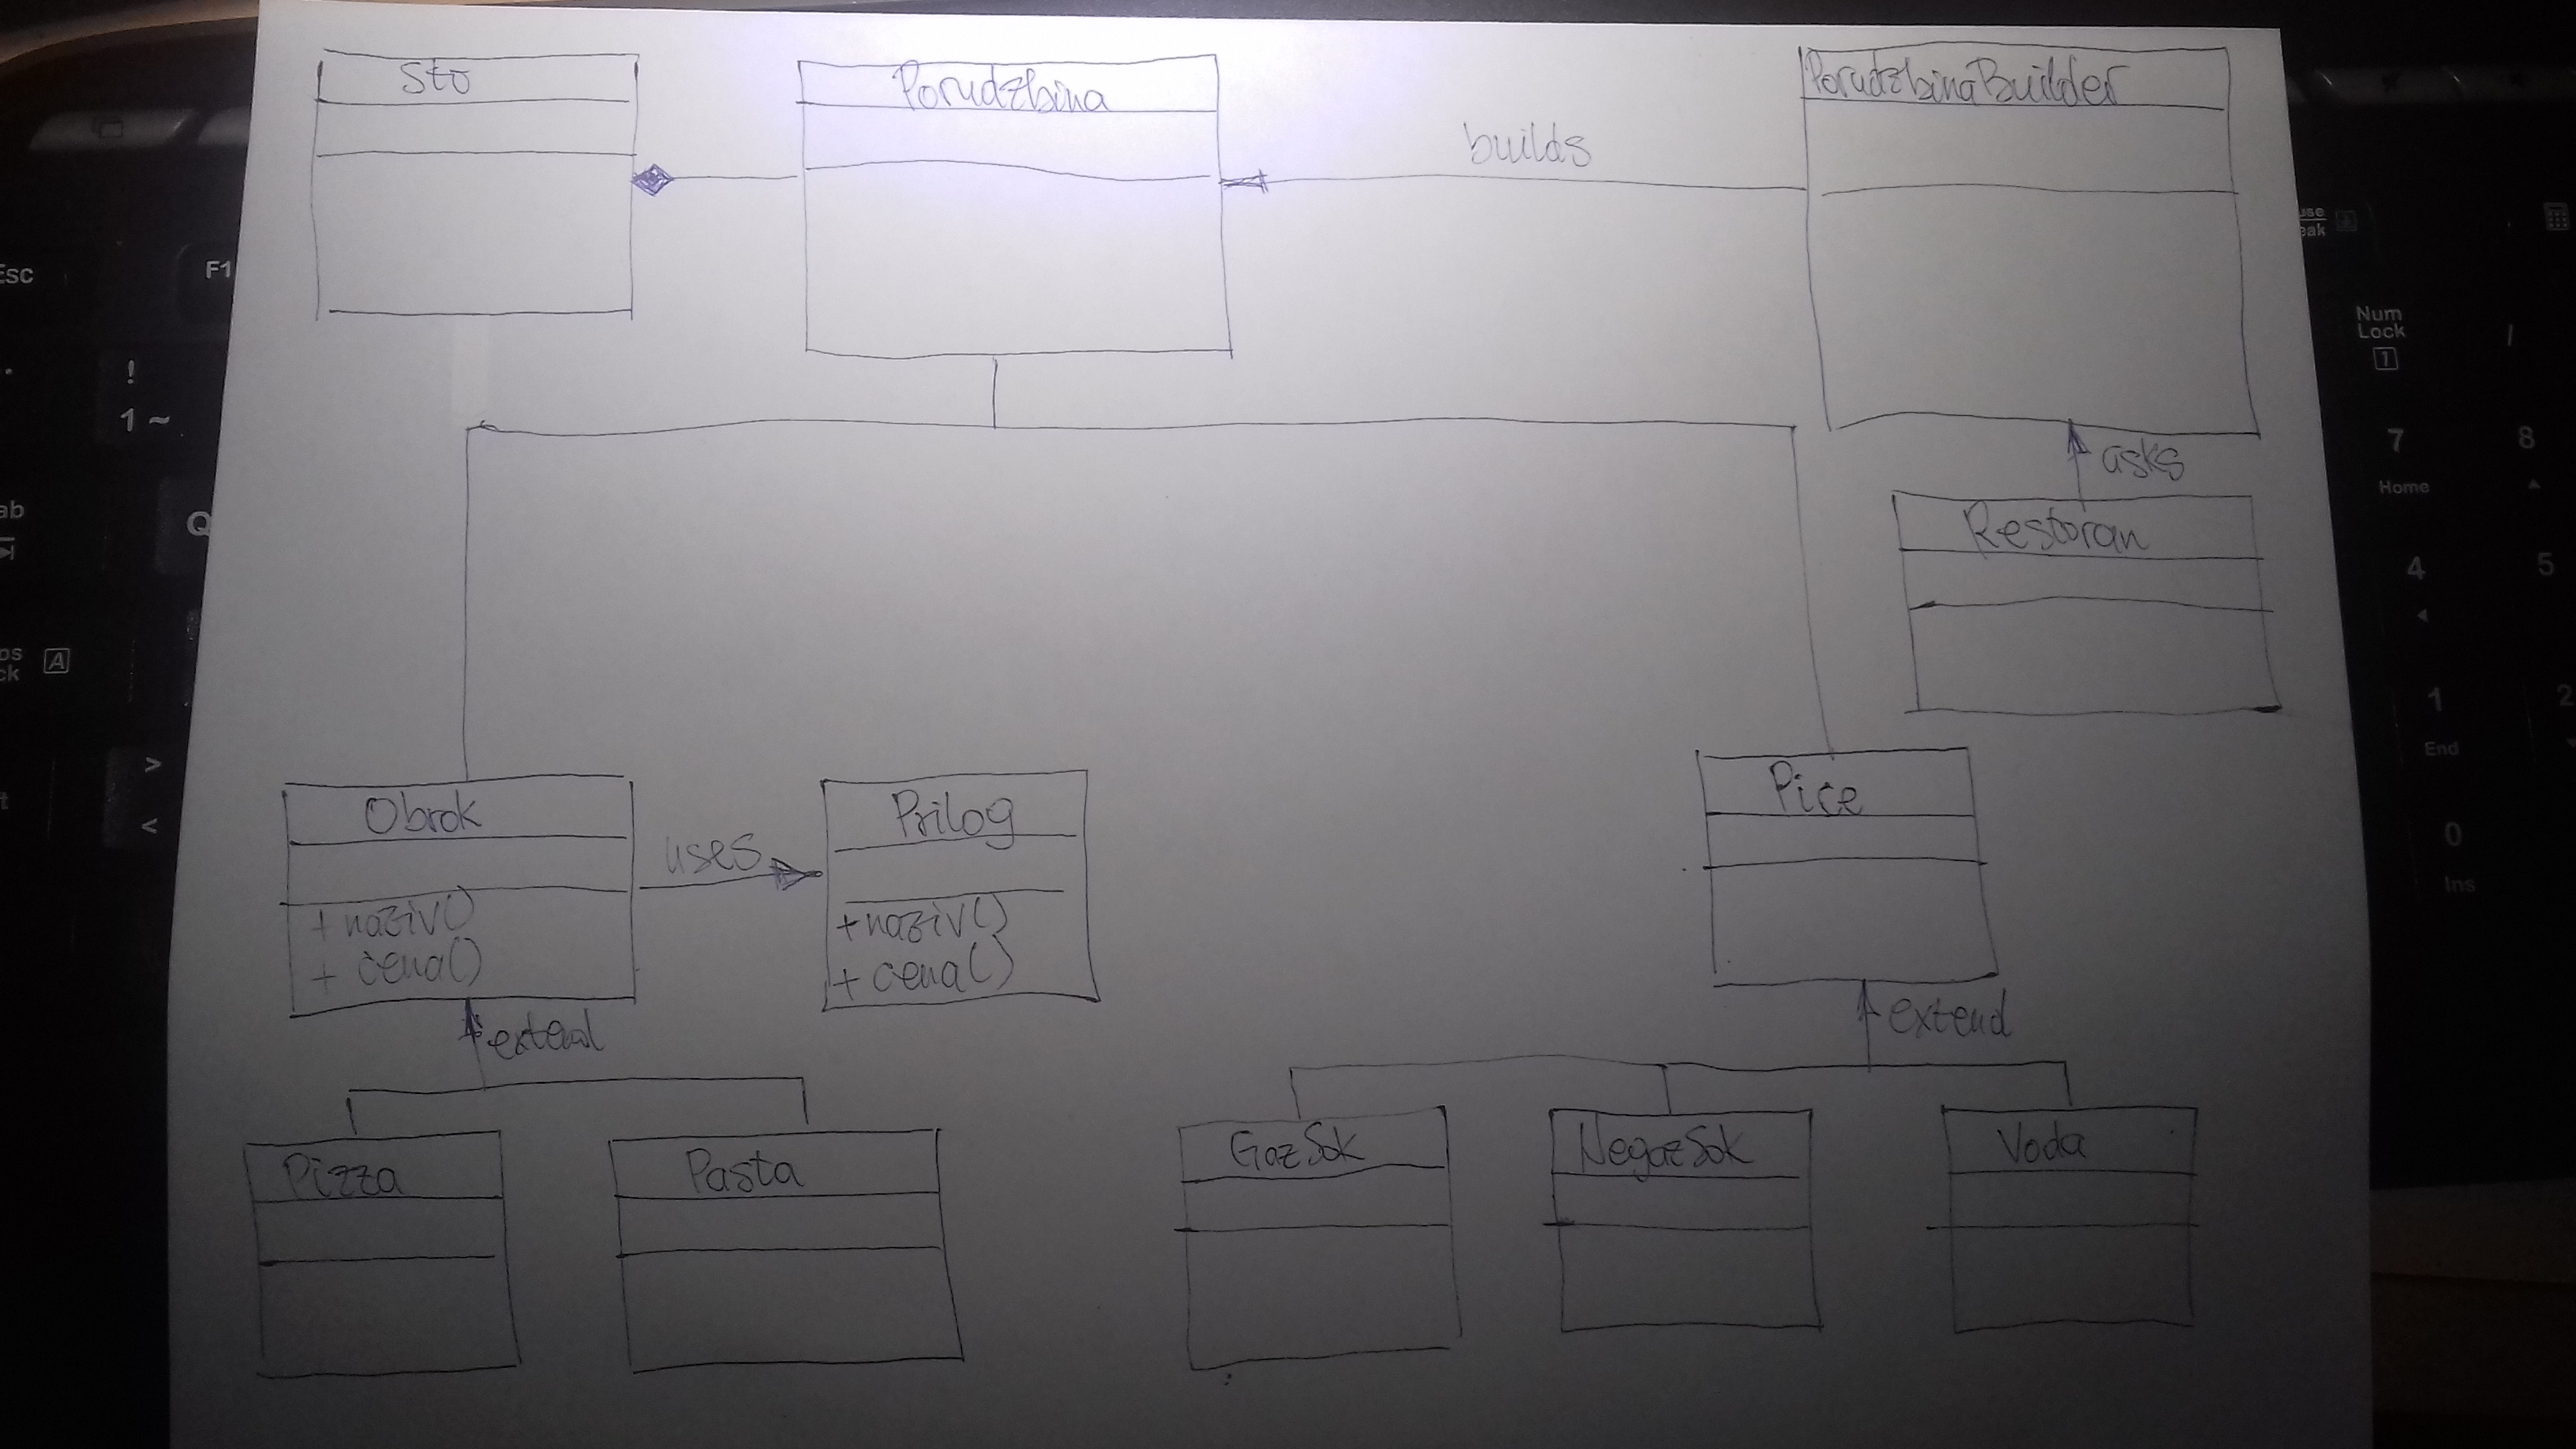 Sto
Porudzbina
PorudzbinaBuilder
builds
asks
Restoran
Obrok
+ naziv()
+ cena()
uses
Prilog
+naziv()
+ cena()
Pice
extend
extend
Pizza
Pasta
GazSok
NegazSok
Voda
Esc
F1
!
1 ~
Q
A
>
<
Num
Lock
1
/
7
Home
8
4
5
1
End
2
0
Ins